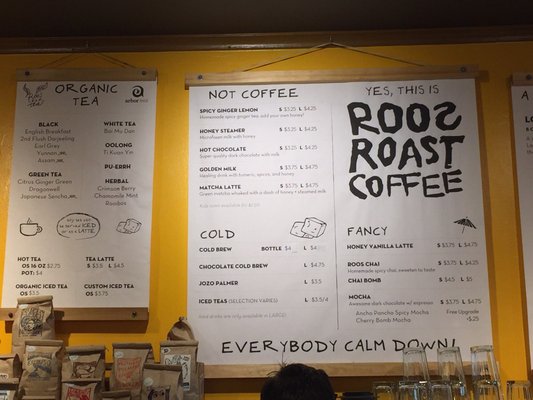 ORGANIC
TEA
arbor
BLACK
English Breakfast
2nd Flush Darjeeling
Earl Grey
Yunnan
Assam
GREEN TEA
Citrus Ginger Green
Dragonwell
Japanese Sencha
WHITE TEA
Bai Mu Dan
OOLONG
Ti Kuan Yin
PU-ERRH
HERBAL
Crimson Berry
Chamomile Mint
Rooibos
any tea can
be served
ICED
or as a
LATTE
HOT TEA
OS 16 OZ $2.75
POT: $4
TEA LATTE
S $3.5 L $4.5
ORGANIC ICED TEA
OS $3.5
CUSTOM ICED TEA
OS $3.75
NOT COFFEE
SPICY GINGER LEMON S $3.25 L $4.25
Homemade spicy ginger tea, add your own honey!
HONEY STEAMER S $3.25 L $4.25
Microfoam milk with honey
HOT CHOCOLATE S $3.25 L $4.25
Super quality dark chocolate with milk
GOLDEN MILK S $3.75 L $4.75
Healing drink with turmeric, spices, and honey
MATCHA LATTE S $3.75 L $4.75
Green matcha whisked with a dash of honey + steamed milk
COLD
COLD BREW BOTTLE $4 L $4
CHOCOLATE COLD BREW L $4.75
JOZO PALMER L $3.5
ICED TEAS (SELECTION VARIES) L $3.5/4
Iced drinks are only available in LARGE!
YES, THIS IS
ROOS
ROAST
COFFEE
FANCY
HONEY VANILLA LATTE S $3.75 L $4.75
ROOS CHAI S $3.75 L $4.25
Homemade spicy chai, sweeten to taste
CHAI BOMB S $4.5 L $5
MOCHA S $3.75 L $4.75
Awesome dark chocolate w/ espresso
Ancho Pancho Spicy Mocha
Cherry Bomb Mocha
Free Upgrade
+$.25
EVERYBODY CALM DOWN!